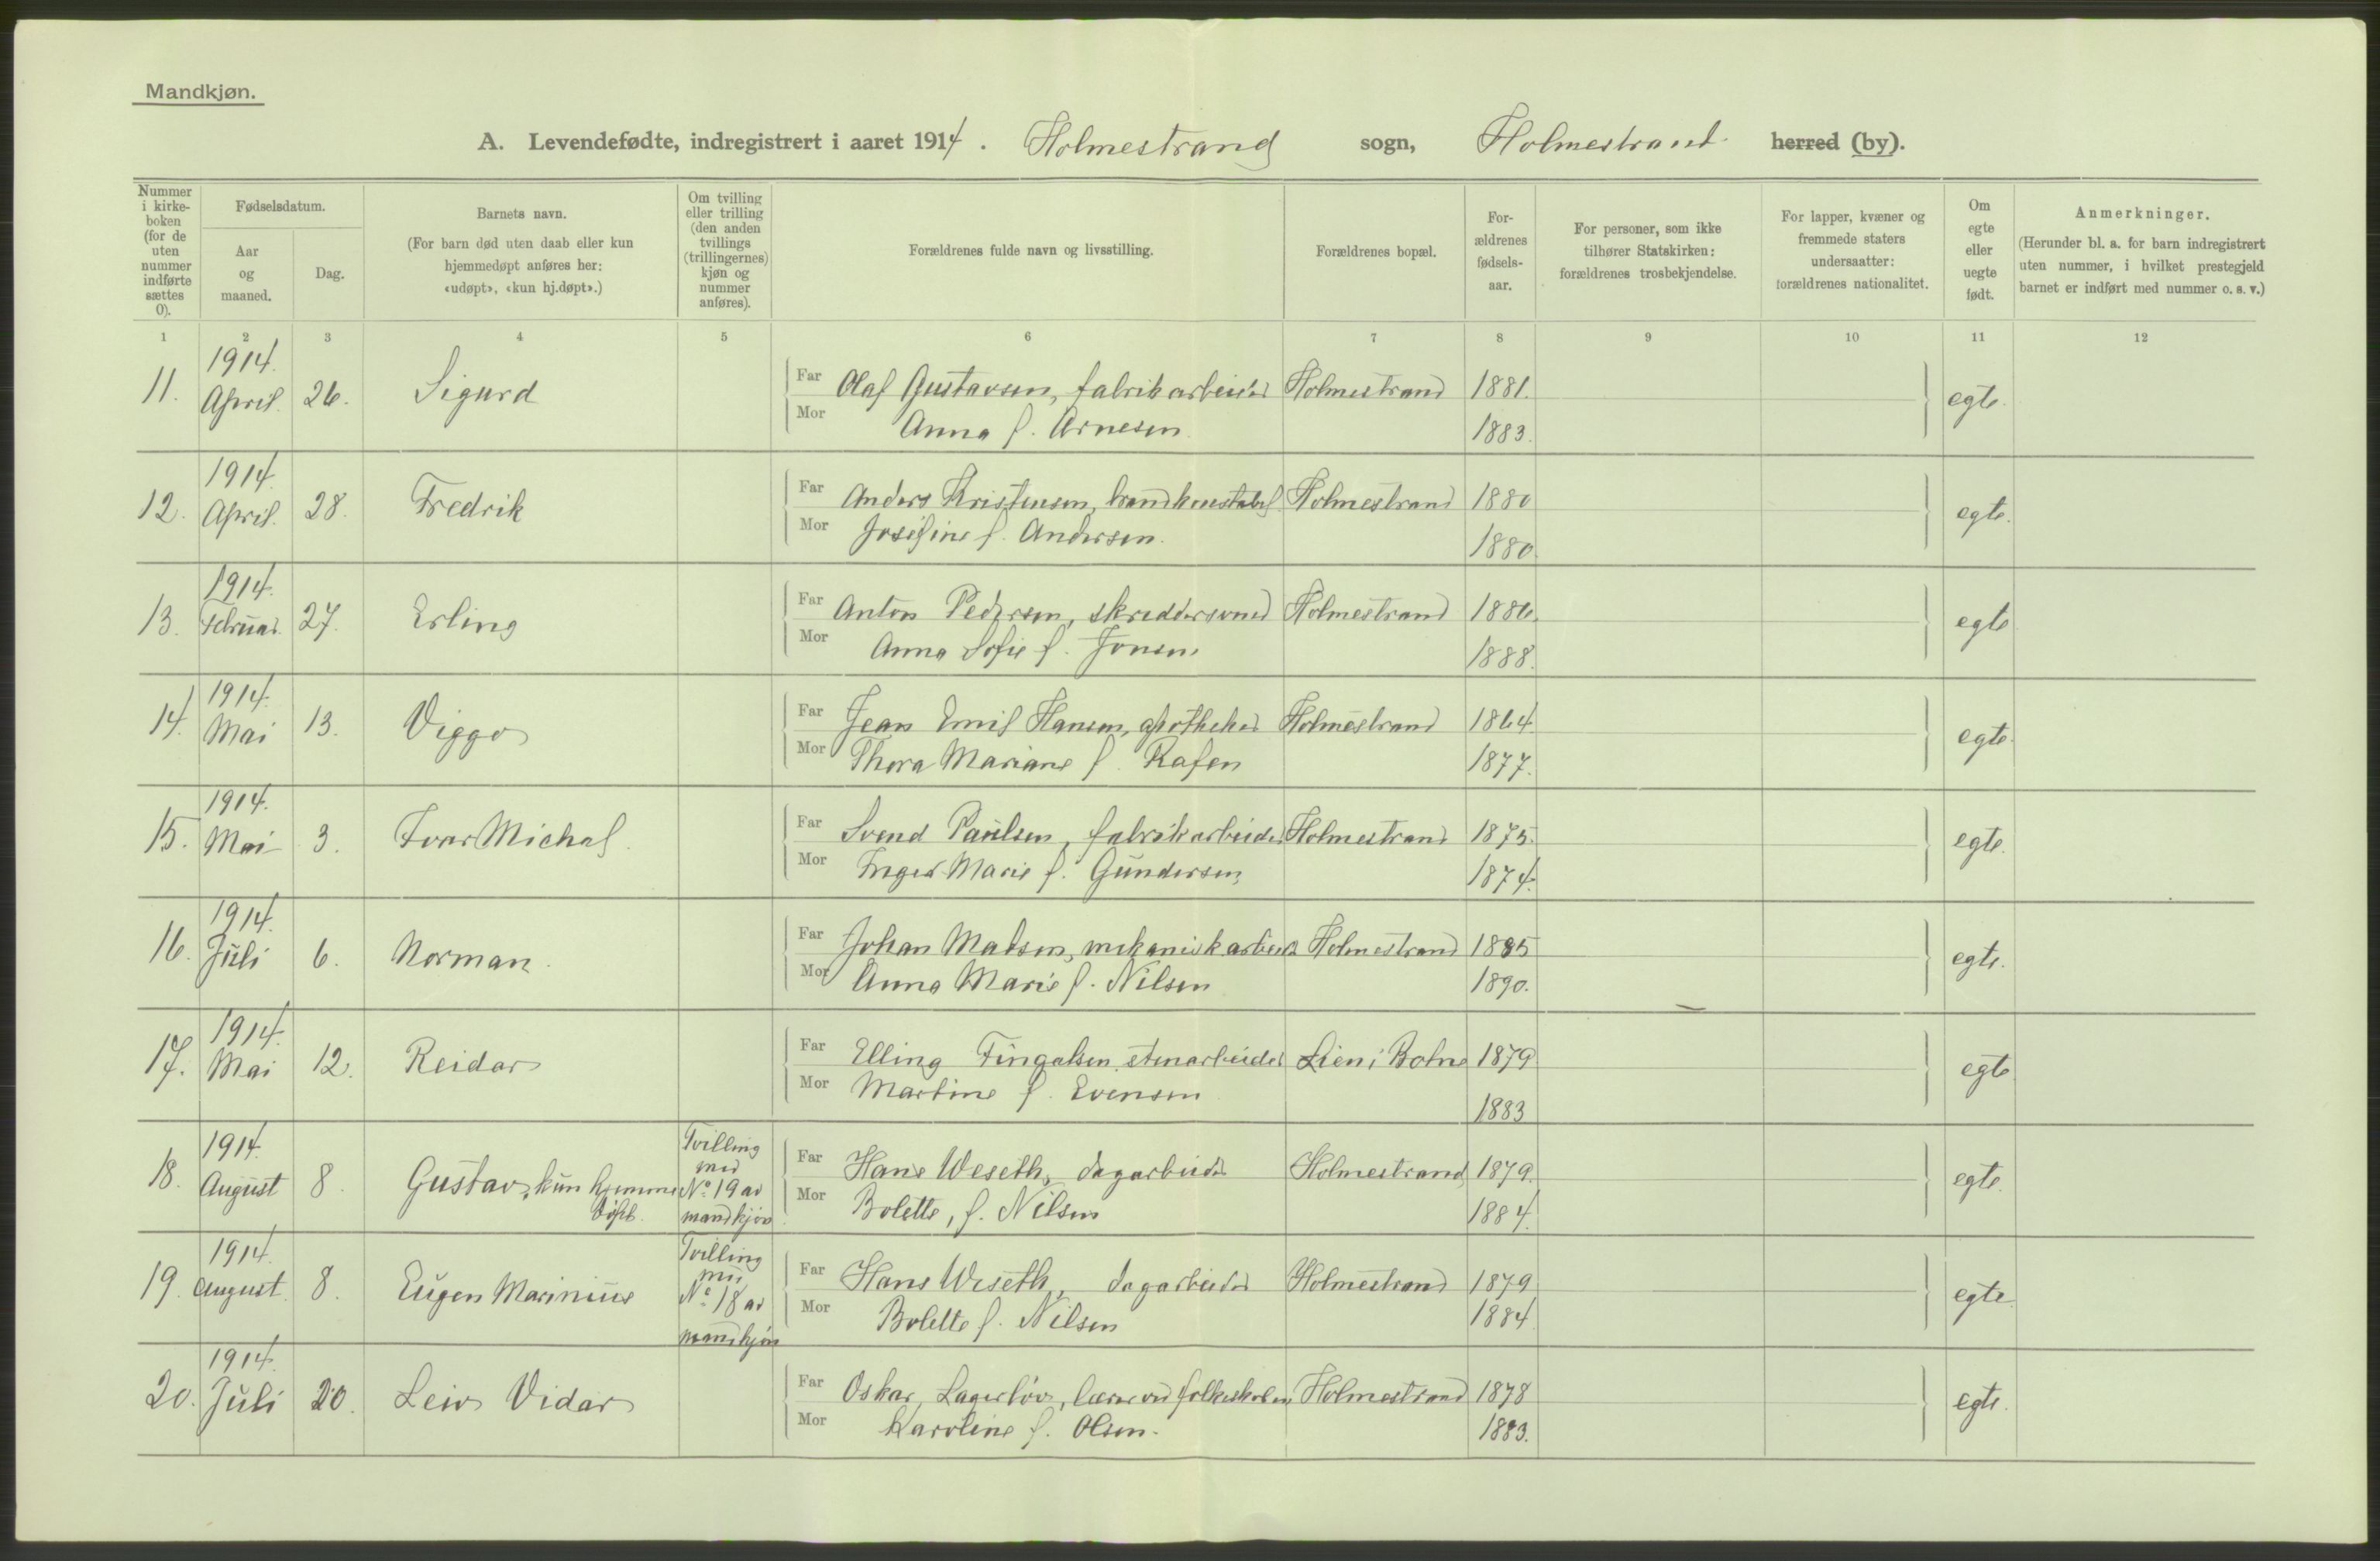 Mandkjøn.
A. Levendefødte, indregistrert i aaret 1914. Holmestrand sogn, Holmestrand herred (by).
Nummer i kirkeboken (for de uten nummer indførte sættes 0).
Fødselsdatum.
Aar og maaned.
Dag.
Barnets navn.
(For barn død uten daab eller kun hjemmedøpt anføres her: «udøpt», «kun hj.døpt».)
Om tvilling eller trilling (den anden tvillings (trillingernes) kjøn og nummer anføres).
Forældrenes fulde navn og livsstilling.
Forældrenes bopæl.
Forældrenes fødselsaar.
For personer, som ikke tilhører Statskirken: forældrenes trosbekjendelse.
For lapper, kvæner og fremmede staters undersaatter: forældrenes nationalitet.
Om egte eller uegte født.
Anmerkninger.
(Herunder bl. a. for barn indregistrert uten nummer, i hvilket prestegjeld barnet er indført med nummer o. s. v.)
1 2 3 4 5 6 7 8 9 10 11 12
11. 1914. April. 26. Sigurd Far Olaf Gustavsen, fabrikarbeider Holmestrand 1881. egte.
Mor Anna f. Arnesen 1883.
12. 1914. April. 28. Fredrik Far Anders Kristensen, brandkonstabel Holmestrand 1880 egte.
Mor Josefine f. Andersen. 1880.
13. 1914. Februar. 27. Erling Far Anton Pedersen, skreddersvend Holmestrand 1886. egte
Mor Anna Sofie f. Jonsen 1888.
14. 1914. Mai 13. Viggo Far Jean Emil Hansen, apotheker Holmestrand 1864. egte.
Mor Thora Mariane f. Rafen 1877.
15. 1914. Mai 3. Ivar Michal. Far Svend Paulsen, fabrikarbeider Holmestrand 1875. egte.
Mor Inger Marie f. Gundersen 1874.
16. 1914. Juli 6. Norman. Far Johan Madsen, mekanisk arbeider Holmestrand 1885 egte.
Mor Anna Marie f. Nilsen 1890.
17. 1914. Mai 12. Reidar Far Elling Fingalsen, stenarbeider Lien i Botne 1879 egte
Mor Martine f. Evensen 1883
18. 1914. August 8. Gustav, kun hjemmedøpt. Tvilling med No 19 av mandkjøn Far Hans Weseth, dagarbeider Holmestrand 1879. egte.
Mor Bolette, f. Nilsen 1884.
19. 1914. August. 8. Eugen Marinius Tvilling med No 18 av mandkjøn Far Hans Weseth, dagarbeider Holmestrand 1879 egte.
Mor Bolette f. Nilsen 1884.
20. 1914. Juli 20. Leiv Vidar Far Oskar Lagerløv, lærer ved folkeskolen Holmestrand 1878 egte.
Mor Karoline f. Olsen. 1883.